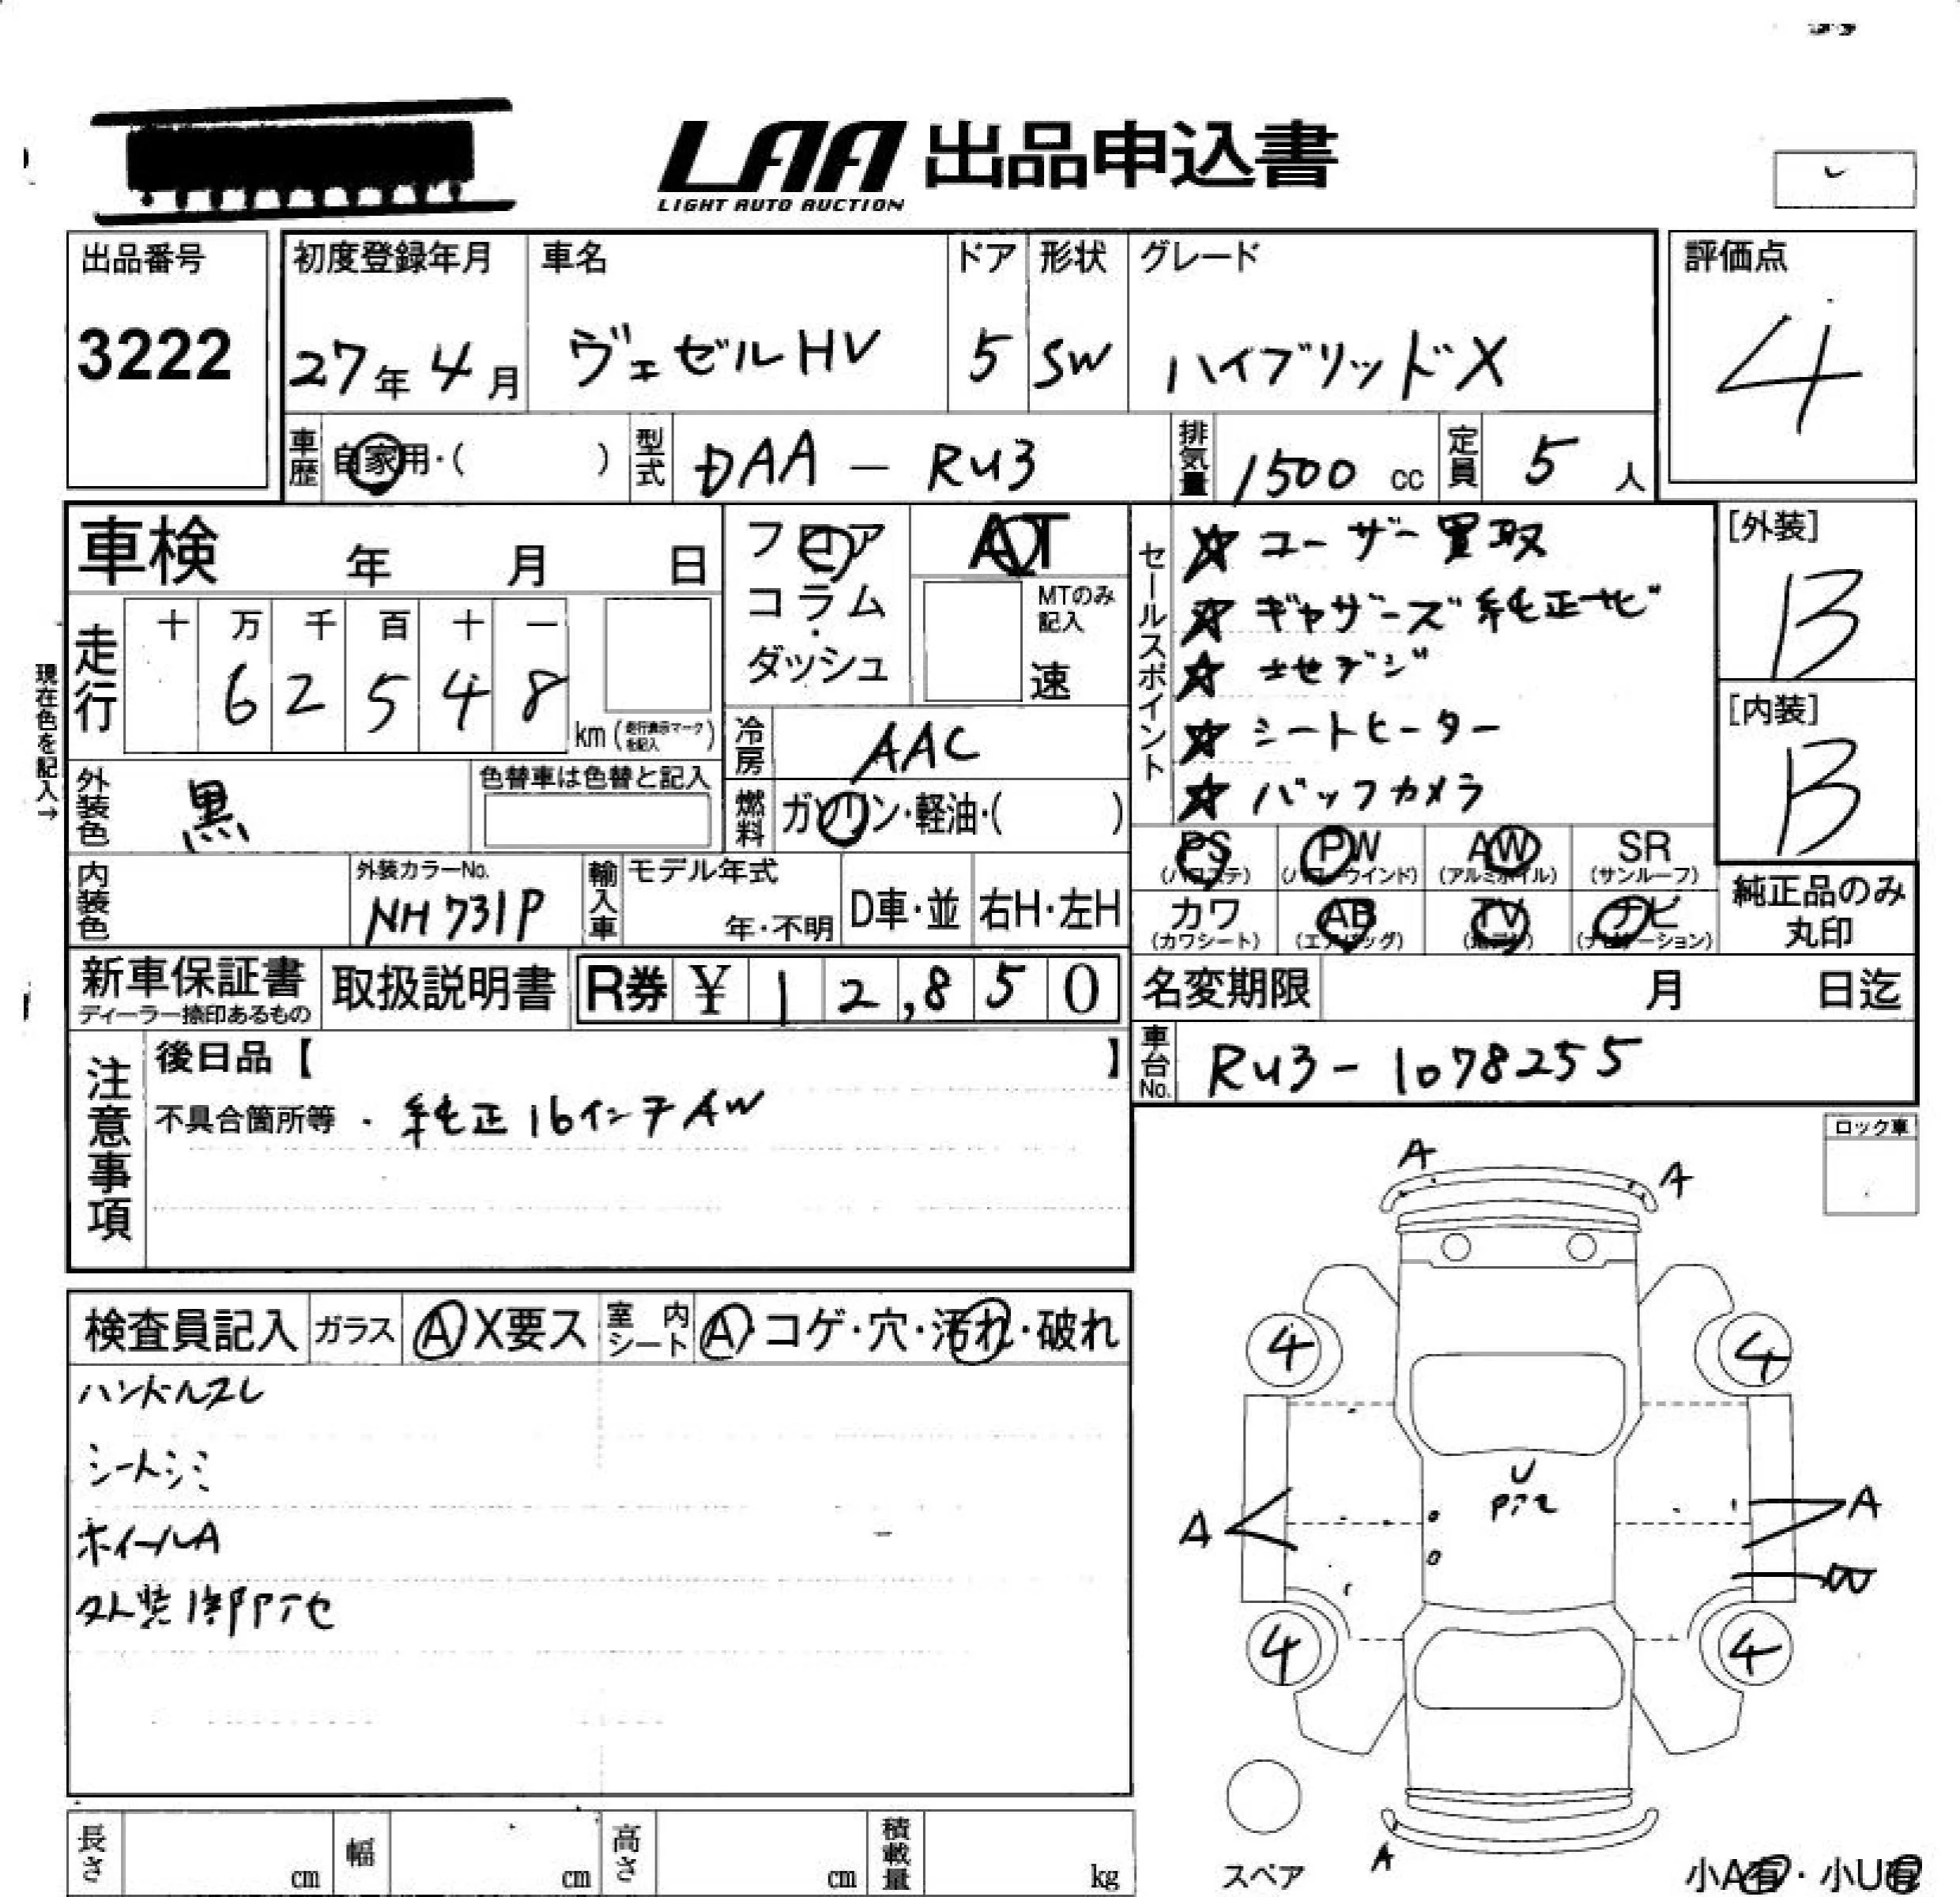 LAA 出品申込書
LIGHT AUTO AUCTION
出品番号
3222
初度登録年月 車名 ドア 形状 グレード
27年4月 ヴェゼルHV 5 SW ハイブリッドX
評価点
4
車歴 自家用・( ) 型式 DAA-RU3 排気量 1500cc 定員 5人
車検 年 月 日
フロア
コラム・
ダッシュ
AT
MTのみ記入
速
走行 十 万 千 百 十 一
6 2 5 4 8
km(走行表示マークを記入)
現在色を記入→
冷房 AAC
燃料 ガソリン・軽油・( )
外装色 黒
色替車は色替と記入
内装色
外装カラーNo.
NH731P
輸入車 モデル年式
年・不明 D車・並 右H・左H
セールスポイント
☆ ユーザー買取
☆ ギャザーズ純正ナビ
☆ フルセグデジ
☆ シートヒーター
☆ バックカメラ
[外装]
B
[内装]
B
PS (パワステ) PW (パワーウインド) AW (アルミホイル) SR (サンルーフ)
カワ (カワシート) AB (エアバッグ) TV (地デジ) ナビ (ナビゲーション)
純正品のみ
丸印
新車保証書
ディーラー捺印あるもの
取扱説明書
R券 ¥ 12,850
名変期限 月 日迄
車台No. RU3-1078255
注意事項
後日品【 】
不具合箇所等 ・純正16インチAW
ロック車
検査員記入 ガラス A X要ス 室内シート A・コゲ・穴・汚れ・破れ
ハンドルスレ
シートシミ
ホイールA
外装1部P
A A
4 4
U
A A
W
4 4
A
スペア
小A有・小U有
長さ cm 幅 cm 高さ cm 積載量 kg